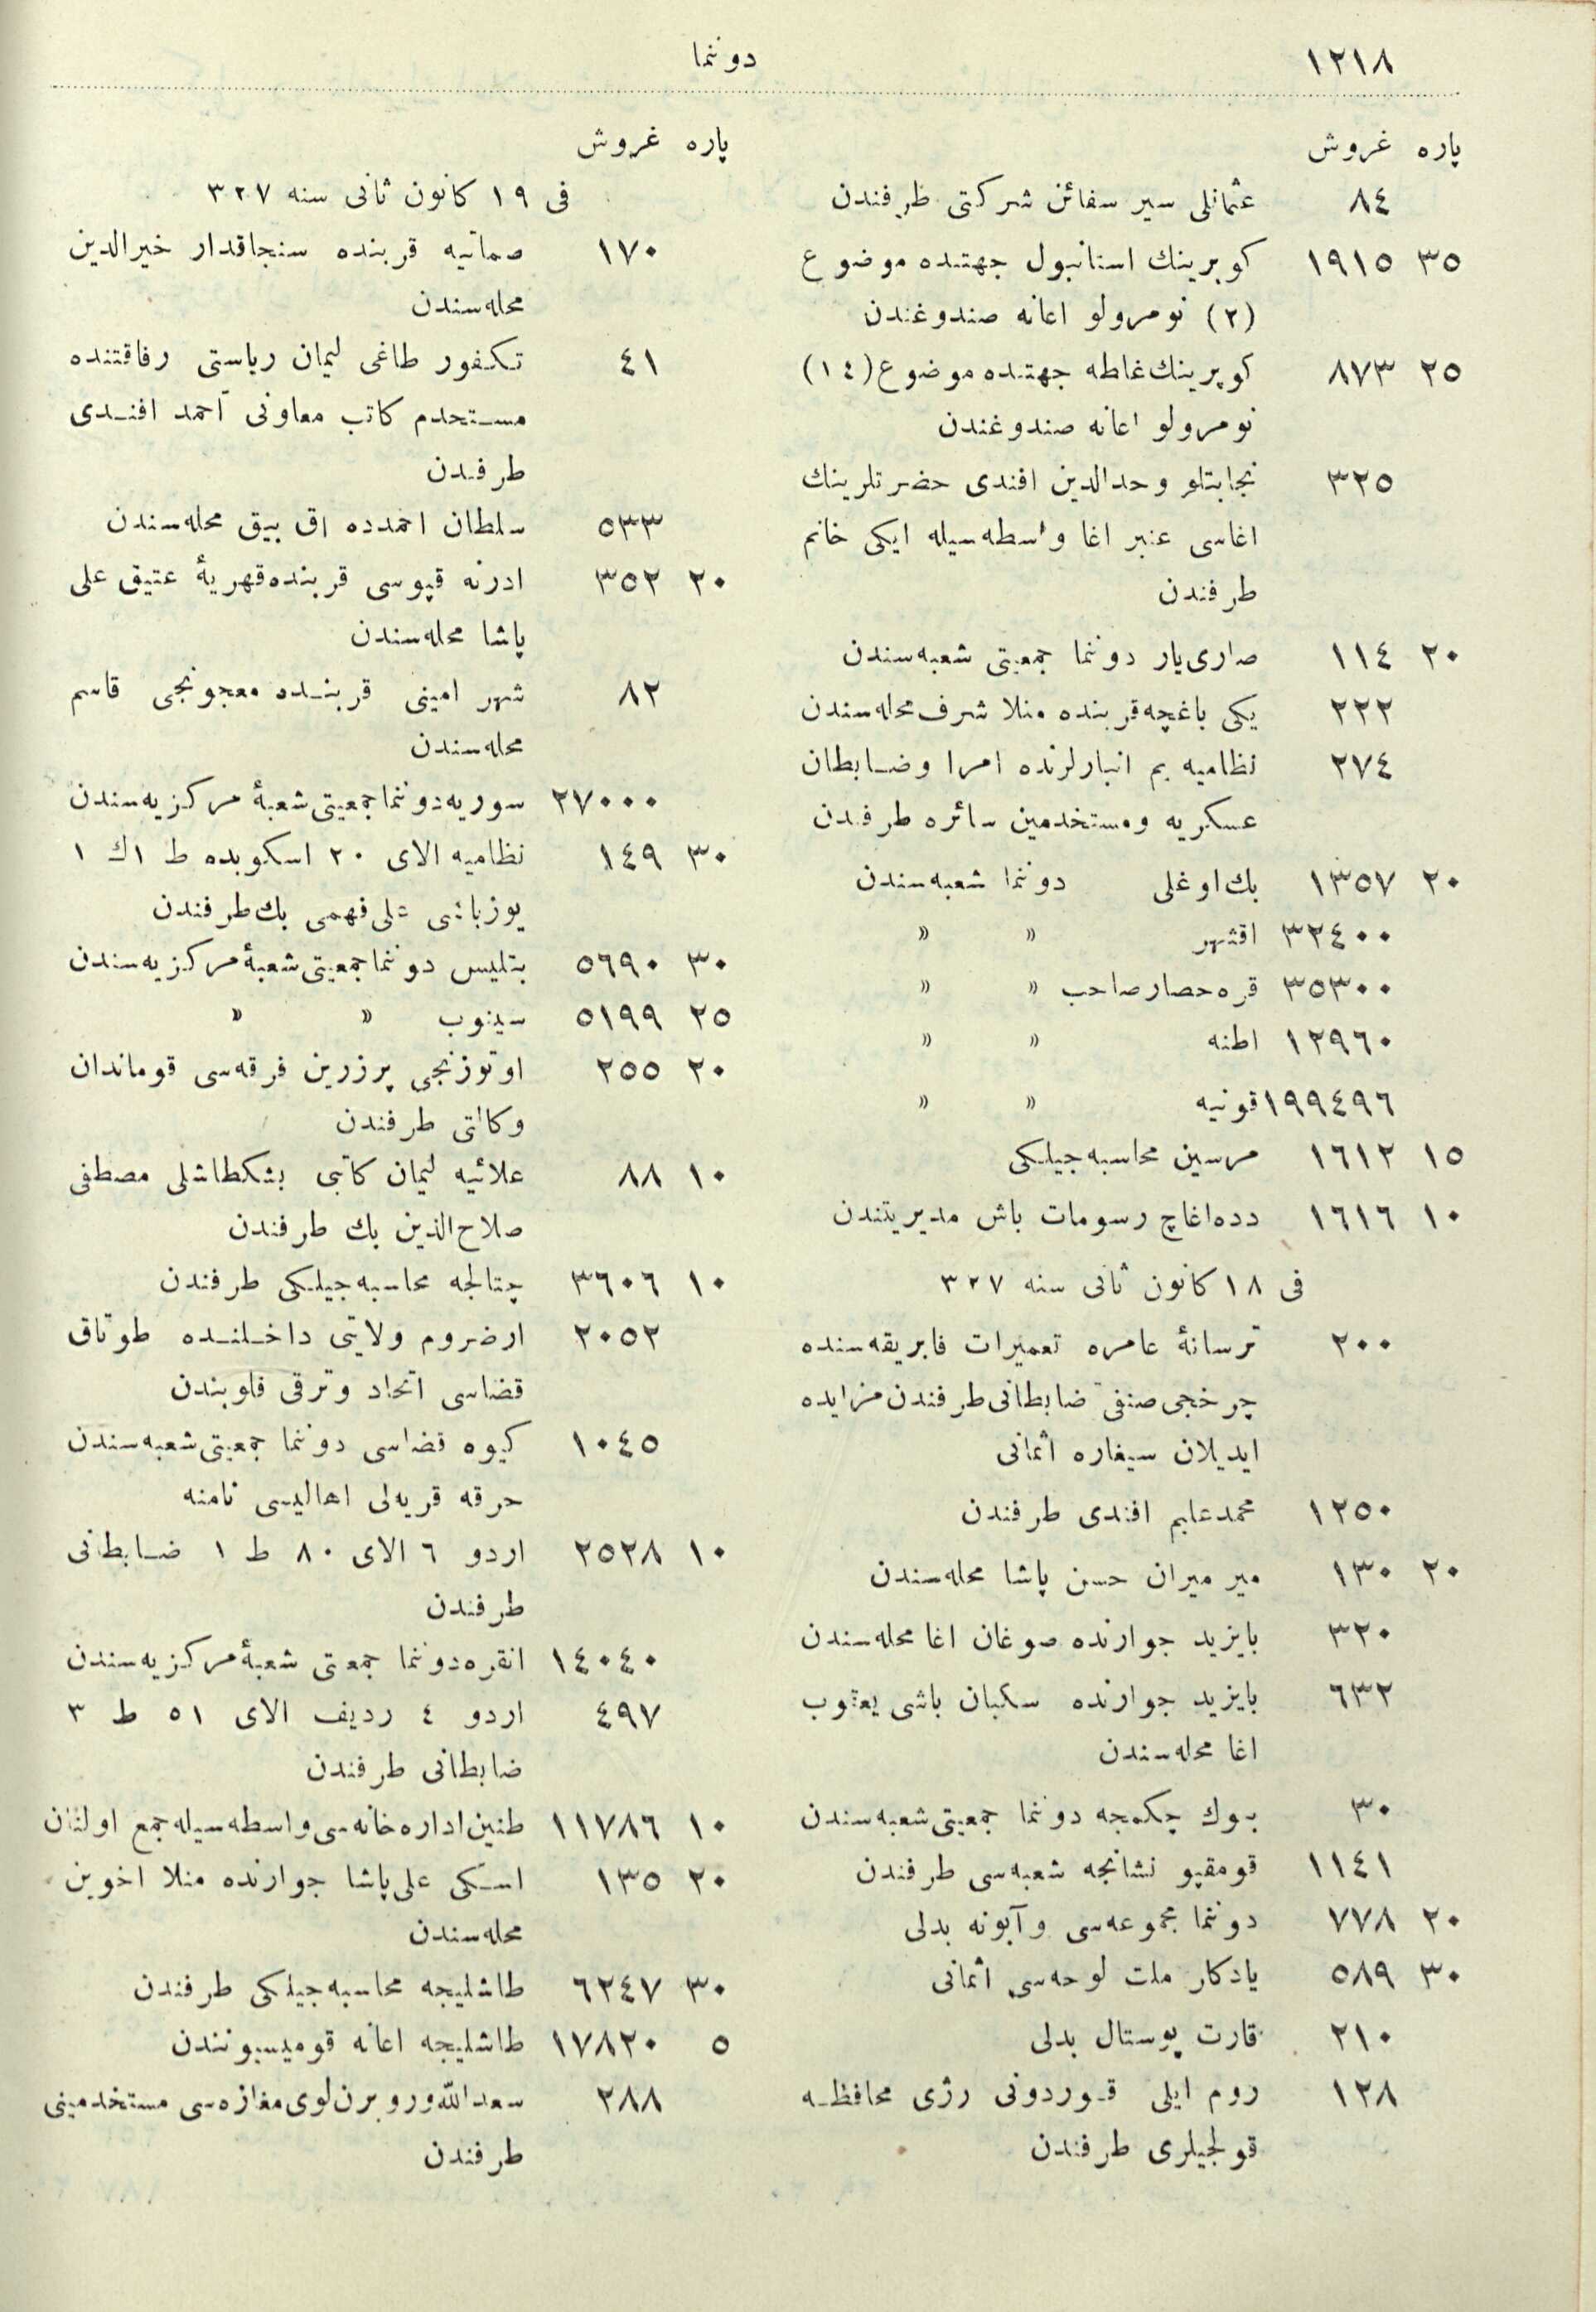 ١٢١٨
دوننما
پاره غروش
٨٤ عثمانلی سیر سفائن شرکتی طرفندن
٣٥ ١٩١٥ کوپرینك استانبول جهتنده موضوع
(٢) نومرولو اعانه صندوغندن
٢٥ ٨٧٣ کوپرینك غلطه جهتنده موضوع (١٤)
نومرولو اعانه صندوغندن
٣٢٥ نجابتلو وحدالدین افندی حضرتلرینك
اغاسی عنبر اغا واسطه‌سیله ایکی خانم
طرفندن
٢٠ ١١٤ صاری‌یار دوننما جمعیتی شعبه‌سندن
٢٢٢ یکی باغچه قربنده منلا شرف محله‌سندن
٢٧٤ نظامیه بم انبارلرنده امرا وضابطان
عسکریه ومستخدمین سائره طرفندن
٢٠ ١٣٥٧ بك‌اوغلی دوننما شعبه‌سندن
٣٢٤٠٠ اقشهر « «
٣٥٣٠٠ قره‌حصار صاحب « «
١٢٩٦٠ اطنه « «
١٩٩٤٩٦ قونیه « «
١٥ ١٦١٢ مرسین محاسبه‌جیلکی
١٠ ١٦١٦ دده‌اغاچ رسومات باش مدیریتندن
فی ١٨ کانون ثانی سنه ٣٢٧
٢٠٠ ترسانهٔ عامره تعمیرات فابریقه‌سنده
چرخجی صنفی ضابطانی طرفندن مزایده
ایدیلان سیغاره اثمانی
١٢٥٠ محمد عالم افندی طرفندن
٢٠ ١٣٠ میر میران حسن پاشا محله‌سندن
٣٢٠ بایزید جوارنده صوغان اغا محله‌سندن
٦٣٢ بایزید جوارنده سکبان باشی یعقوب
اغا محله‌سندن
٣٠ بوك چکمجه دوننما جمعیتی شعبه‌سندن
١١٤١ قومقپو نشانجه شعبه‌سی طرفندن
٢٠ ٧٧٨ دوننما مجموعه‌سی وآبونه بدلی
٣٠ ٥٨٩ یادکار ملت لوحه‌سی اثمانی
٢١٠ قارت پوستال بدلی
١٢٨ روم ایلی قوردونی رژی محافظه
قولجیلری طرفندن
پاره غروش
فی ١٩ کانون ثانی سنه ٣٢٧
١٧٠ صماتیه قربنده سنجاقدار خیرالدین
محله‌سندن
٤١ تکفور طاغی لیمان ریاستی رفاقتنده
مستحدم کاتب معاونی احمد افندی
طرفدن
٥٣٣ سلطان احمدده اق بیق محله‌سندن
٢٠ ٣٥٢ ادرنه قپوسی قربنده قهریهٔ عتیق علی
پاشا محله‌سندن
٨٢ شهر امینی قربنده معجونجی قاسم
محله‌سندن
٢٧٠٠٠ سوریه دوننما جمعیتی شعبهٔ مرکزیه‌سندن
٣٠ ١٤٩ نظامیه الای ٢٠ اسکوبده ط ١ك ١
یوزباشی علی فهمی بك طرفندن
٣٠ ٥٦٩٠ بتلیس دوننما جمعیتی شعبهٔ مرکزیه‌سندن
٢٥ ٥١٩٩ سینوب « «
٢٠ ٢٥٥ اوتوزنجی پرزرین فرقه‌سی قوماندان
وکالتی طرفندن
١٠ ٨٨ علائیه لیمان کاتبی بشکطاشلی مصطفی
صلاح‌الدین بك طرفندن
١٠ ٣٦٠٦ چتالجه محاسبه‌جیلکی طرفندن
٢٠٥٢ ارضروم ولایتی داخلنده طوتاق
قضاسی اتحاد وترقی قلوبندن
١٠٤٥ کیوه قضاسی دوننما جمعیتی شعبه‌سندن
حرقه قریه‌لی اهالیسی نامنه
١٠ ٢٥٢٨ اردو ٦ الای ٨٠ ط ١ ضابطانی
طرفندن
١٤٠٤٠ انقره دوننما جمعتی شعبهٔ مرکزیه‌سندن
٤٩٧ اردو ٤ ردیف الای ٥١ ط ٣
ضابطانی طرفندن
١٠ ١١٧٨٦ طنین اداره‌خانه‌سی واسطه‌سیله جمع اولنان
٢٠ ١٣٥ اسکی علی‌پاشا جوارنده منلا اخوین
محله‌سندن
٣٠ ٦٢٤٧ طاشلیجه محاسبه‌جیلکی طرفندن
٥ ١٧٨٢٠ طاشلیجه اعانه قومیسیونندن
٢٨٨ سعدالله وروبرن‌لوی مغازه‌سی مستخدمینی
طرفندن